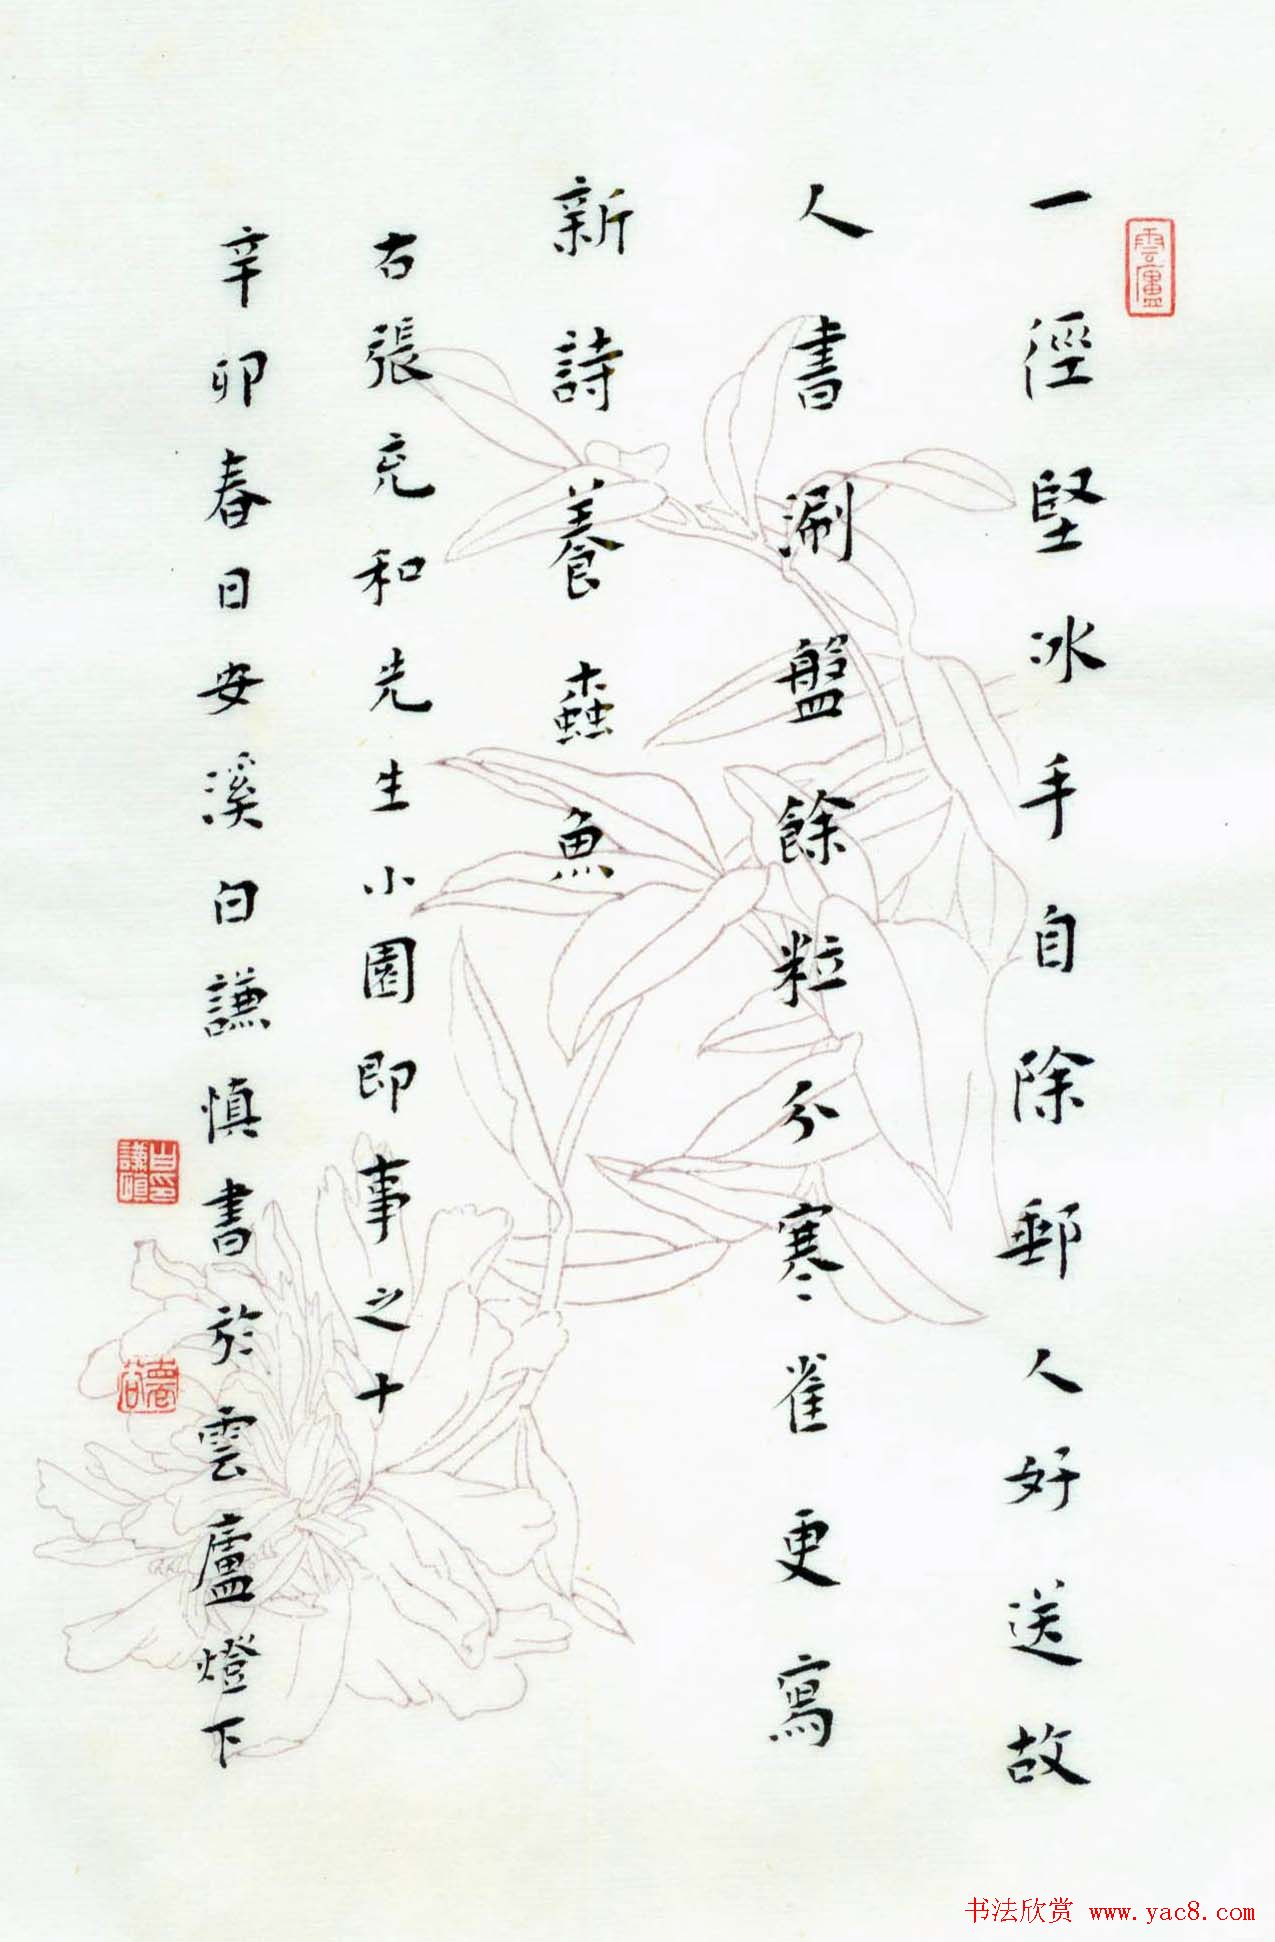 雲廬
一徑堅冰手自除郵人好送故
人書涮盤餘粒分寒雀更寫
新詩養蠹魚
右張充和先生小園即事之十
辛卯春日安溪白謙慎書於雲廬燈下
白謙慎印
书法欣赏 www.yac8.com